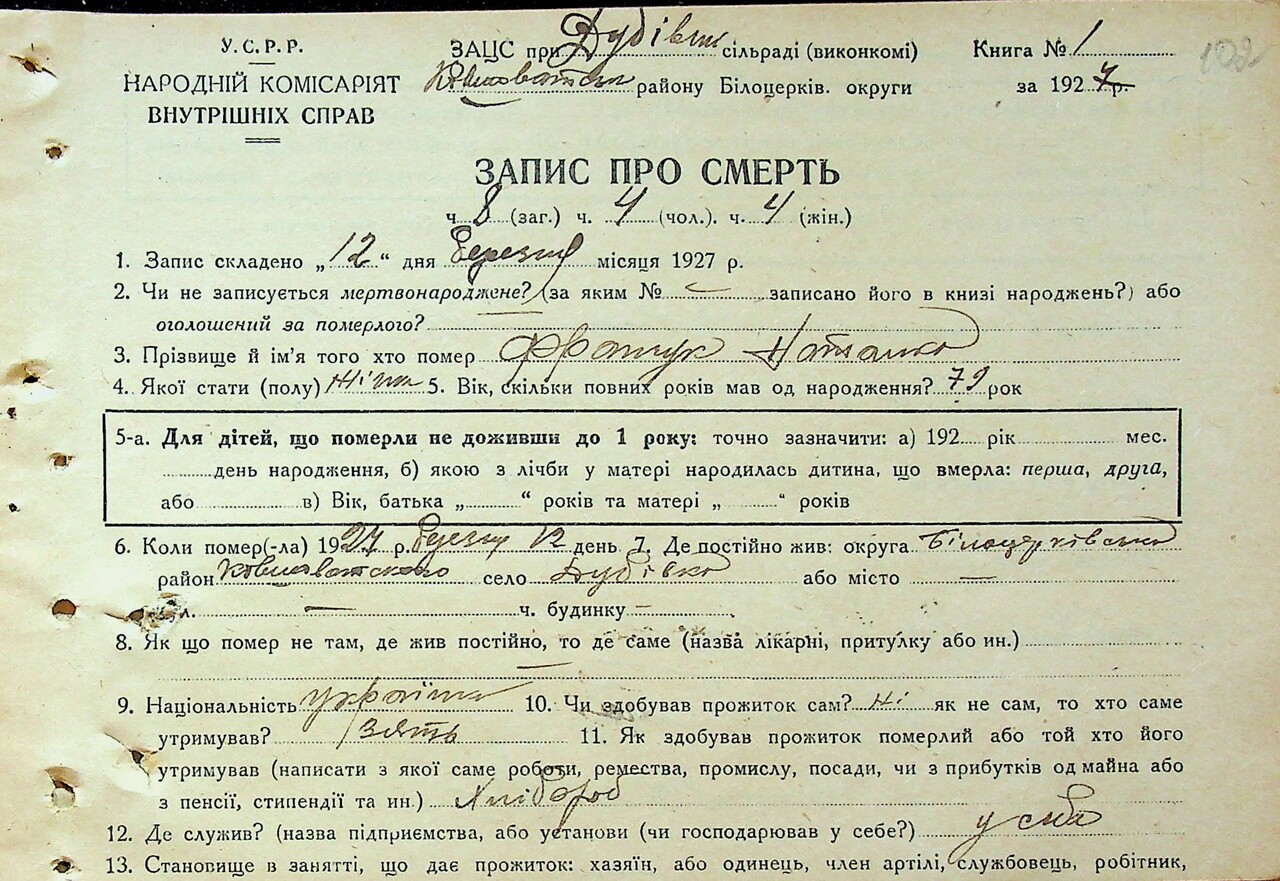 У.С.Р.Р.
НАРОДНІЙ КОМІСАРІЯТ
ВНУТРІШНІХ СПРАВ
ЗАЦС при Дубівській сільраді (виконкомі)
району Білоцерків. округи
Книга № 1
за 1927 р.
102
ЗАПИС ПРО СМЕРТЬ
ч. 8 (заг.) ч. 4 (чол.). ч. 4 (жін.)
1. Запис складено „12“ дня березня місяця 1927 р.
2. Чи не записується мертвонароджене? (за яким № — записано його в книзі народжень?) або
оголошений за померлого?
3. Прізвище й ім’я того хто помер Наталка
4. Якої стати (полу) жіноч 5. Вік, скільки повних років мав од народження? 79 рок
5-а. Для дітей, що померли не доживши до 1 року: точно зазначити: а) 192 рік мес.
день народження, б) якою з лічби у матері народилась дитина, що вмерла: перша, друга,
або в) Вік, батька „ “ років та матері „ “ років
6. Коли помер(-ла) 1927 р. березня 12 день 7. Де постійно жив: округа Білоцерківська
район село Дубівка або місто —
л. — ч. будинку —
8. Як що помер не там, де жив постійно, то де саме (назва лікарні, притулку або ин.)
—
9. Національність україн 10. Чи здобував прожиток сам? ні як не сам, то хто саме
утримував? зять 11. Як здобував прожиток померлий або той хто його
утримував (написати з якої саме роботи, ремества, промислу, посади, чи з прибутків од майна або
з пенсії, стипендії та ин.) Хлібороб
12. Де служив? (назва підприємства, або установи (чи господарював у себе?) у себе
13. Становище в занятті, що дає прожиток: хазяїн, або одинець, член артілі, службовець, робітник,